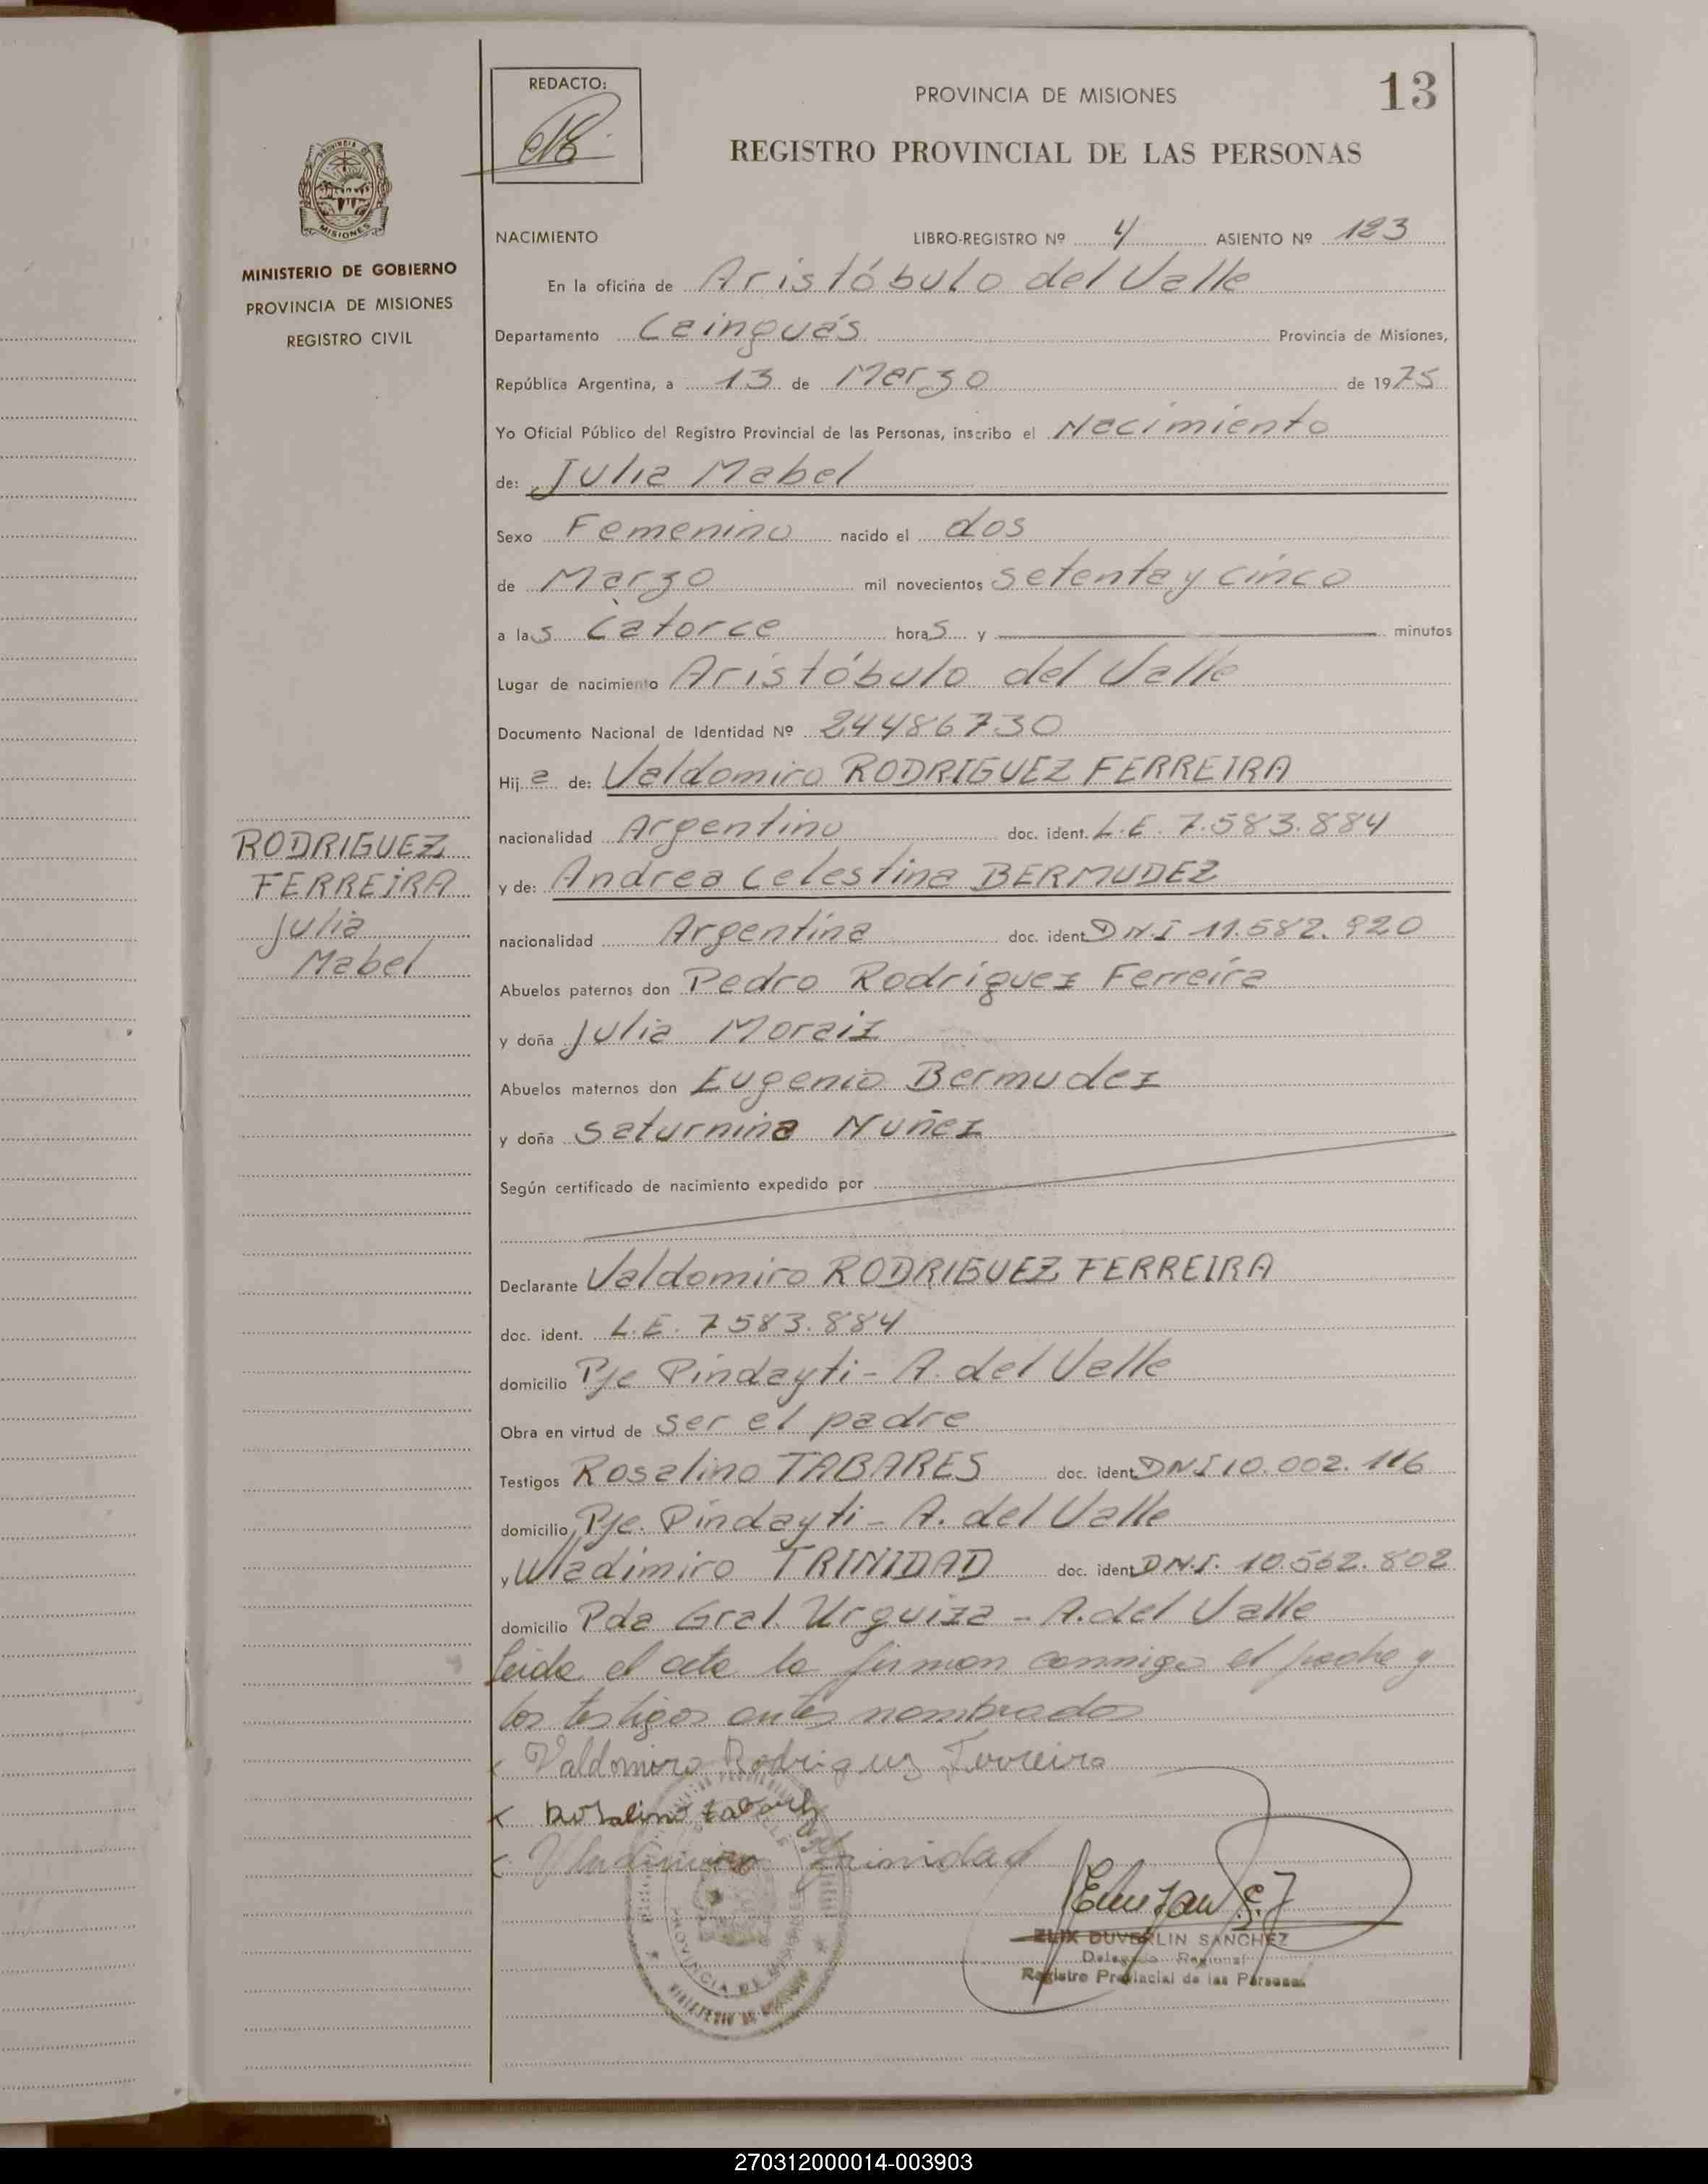 REDACTO:
PROVINCIA DE MISIONES
13
REGISTRO PROVINCIAL DE LAS PERSONAS
MISIONES
MINISTERIO DE GOBIERNO
PROVINCIA DE MISIONES
REGISTRO CIVIL
NACIMIENTO LIBRO-REGISTRO Nº 4 ASIENTO Nº 123
En la oficina de Aristóbulo del Valle
Departamento Cainguás Provincia de Misiones,
República Argentina, a 13 de Marzo de 1975
Yo Oficial Público del Registro Provincial de las Personas, inscribo el Nacimiento
de: Julia Mabel
Sexo Femenino nacido el dos
de Marzo mil novecientos setenta y cinco
a las catorce horas y minutos
Lugar de nacimiento Aristóbulo del Valle
Documento Nacional de Identidad Nº 24486730
Hija de: Valdomiro RODRIGUEZ FERREIRA
nacionalidad Argentino doc. ident. L.E. 7.583.884
y de: Andrea Celestina BERMUDEZ
nacionalidad Argentina doc. ident D.N.I 11.582.920
RODRIGUEZ
FERREIRA
Julia
Mabel
Abuelos paternos don Pedro Rodríguez Ferreira
y doña Julia Moraiz
Abuelos maternos don Eugenio Bermudez
y doña Saturnina Nuñez
Según certificado de nacimiento expedido por
Declarante Valdomiro RODRIGUEZ FERREIRA
doc. ident. L.E. 7583.884
domicilio Pje Pindayti - A. del Valle
Obra en virtud de ser el padre
Testigos Rosalino TABARES doc. ident DNI 10.002.116
domicilio Pje. Pindayti - A. del Valle
y Wladimiro TRINIDAD doc. ident D.N.I. 10.562.802
domicilio Pda Gral. Urquiza - A. del Valle
leida el acta la firman conmigo el padre y
los testigos antes nombrados
Valdomiro Rodriguz Ferreira
Rosalino
Trinidad
ELIX DUVERLIN SANCHEZ
Delegado Regional
Registro Provincial de las Personas
270312000014-003903